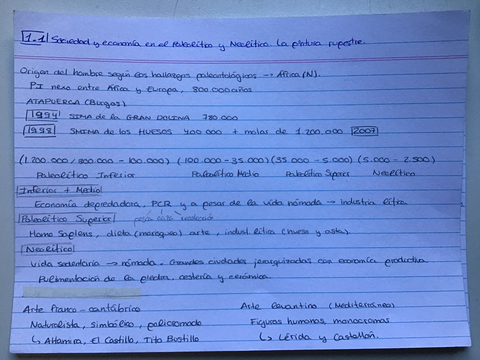 1.1 Sociedad y economía en el Paleolítico y Neolítico. La pintura rupestre.
Origen del hombre según los hallazgos paleontológicos → África (N).
PI nexo entre África y Europa, 800.000 años
ATAPUERCA (Burgos)
1994 SIMA de la GRAN DOLINA 780.000
1998 SMINA de los HUESOS 400.000 + molas de 1.200.000 2007
(1.200.000/800.000 - 100.000) (100.000 - 35.000) (35.000 - 5.000) (5.000 - 2.500)
Paleolítico Inferior Paleolítico Medio Paleolítico Superior Neolítico
Inferior + Medio
Economía depredadora, PCR y a pesar de la vida nómada → Industria lítica.
Paleolítico Superior pesca caza recolección
Homo Sapiens, dieta (marisqueo) arte, indust. lítica (hueso y asta).
Neolítico
Vida sedentaria → nómada. Grandes ciudades jerarquizadas con economía productiva.
Pulimentación de la piedra, cestería y cerámica.
Arte franco-cantábrico Arte Levantino (Mediterráneo)
Naturalista, simbólico, policromado Figuras humanas, monocromas
↳ Altamira, El Castillo, Tito Bustillo ↳ Lérida y Castellón.